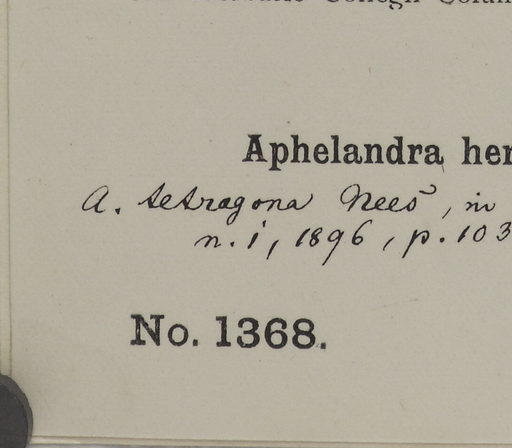 Aphelandra her
A. tetragona Nees, in
n. i, 1896, p. 103
No. 1368.